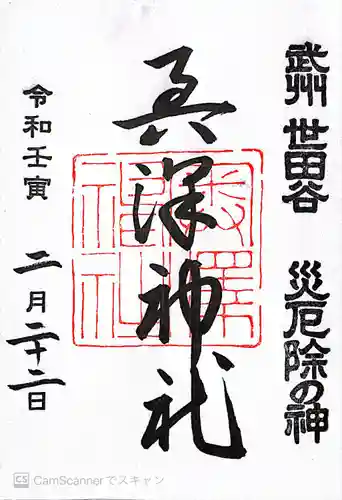 武州 世田谷 災厄除の神
奥澤神社
奥澤神社
令和壬寅 二月二十二日
CS CamScannerでスキャン